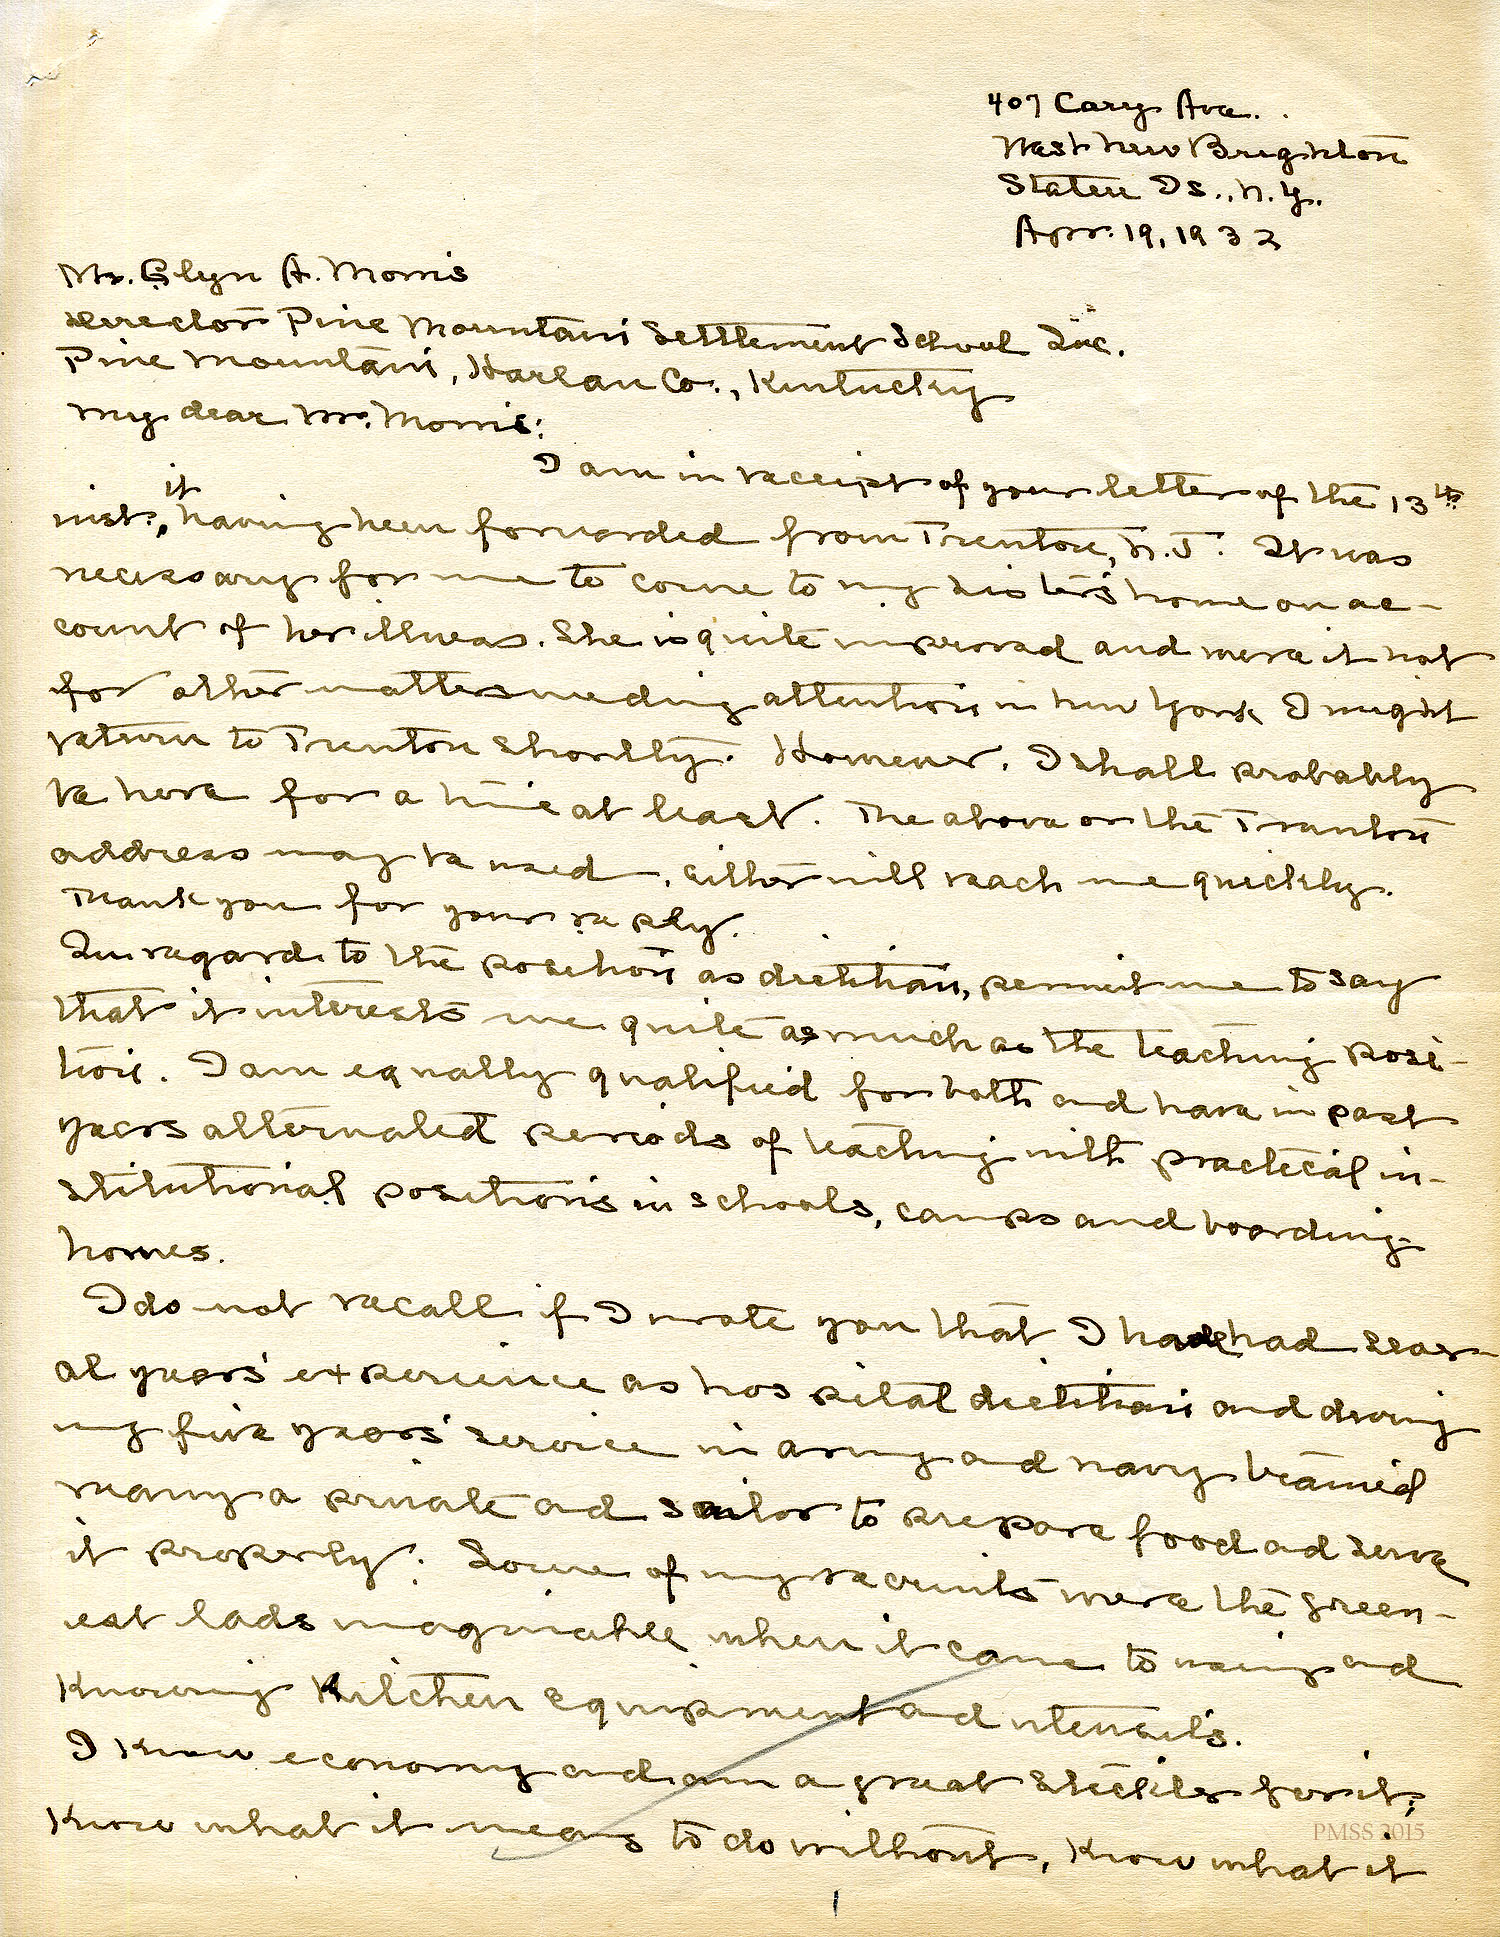 407 Cary Ave.
West New Brighton
Staten Is., N.Y.
Apr. 19, 1932
Mr. Glyn A. Morris
Director Pine Mountain Settlement School Inc.
Pine Mountain, Harlan Co., Kentucky
My dear Mr. Morris:
I am in receipt of your letter of the 13th
inst., it having been forwarded from Trenton, N.J. It was
necessary for me to come to my sister's home on ac-
count of her illness. She is quite improved and were it not
for other matters needing attention in New York I might
return to Trenton shortly. However, I shall probably
be here for a time at least. The above or the Trenton
address may be used, either will reach me quickly.
Thank you for your reply.
In regard to the position as dietitian, permit me to say
that it interests me quite as much as the teaching posi-
tion. I am equally qualified for both and have in past
years alternated periods of teaching with practical in-
stitutional positions in schools, camps and boarding
homes.
I do not recall if I wrote you that I have had sever-
al years' experience as hospital dietitian and during
my five years' service in army and navy trained
many a private and sailor to prepare food and serve
it properly. Some of my recruits were the green-
est lads imaginable when it came to using and
knowing kitchen equipment and utensils.
I know economy and am a great stickler for it;
know what it means to do without, know what it
PMSS 2015
1